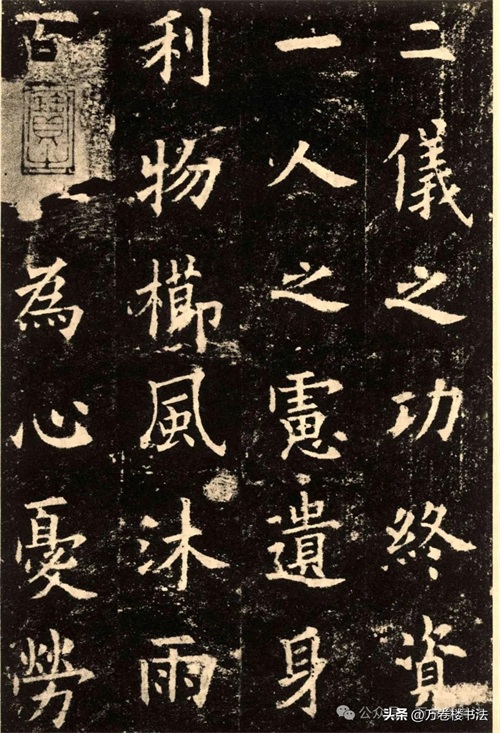 二儀之功終資
一人之慮遺身
利物櫛風沐雨
百為心憂勞
公众
头条 @万卷楼书法